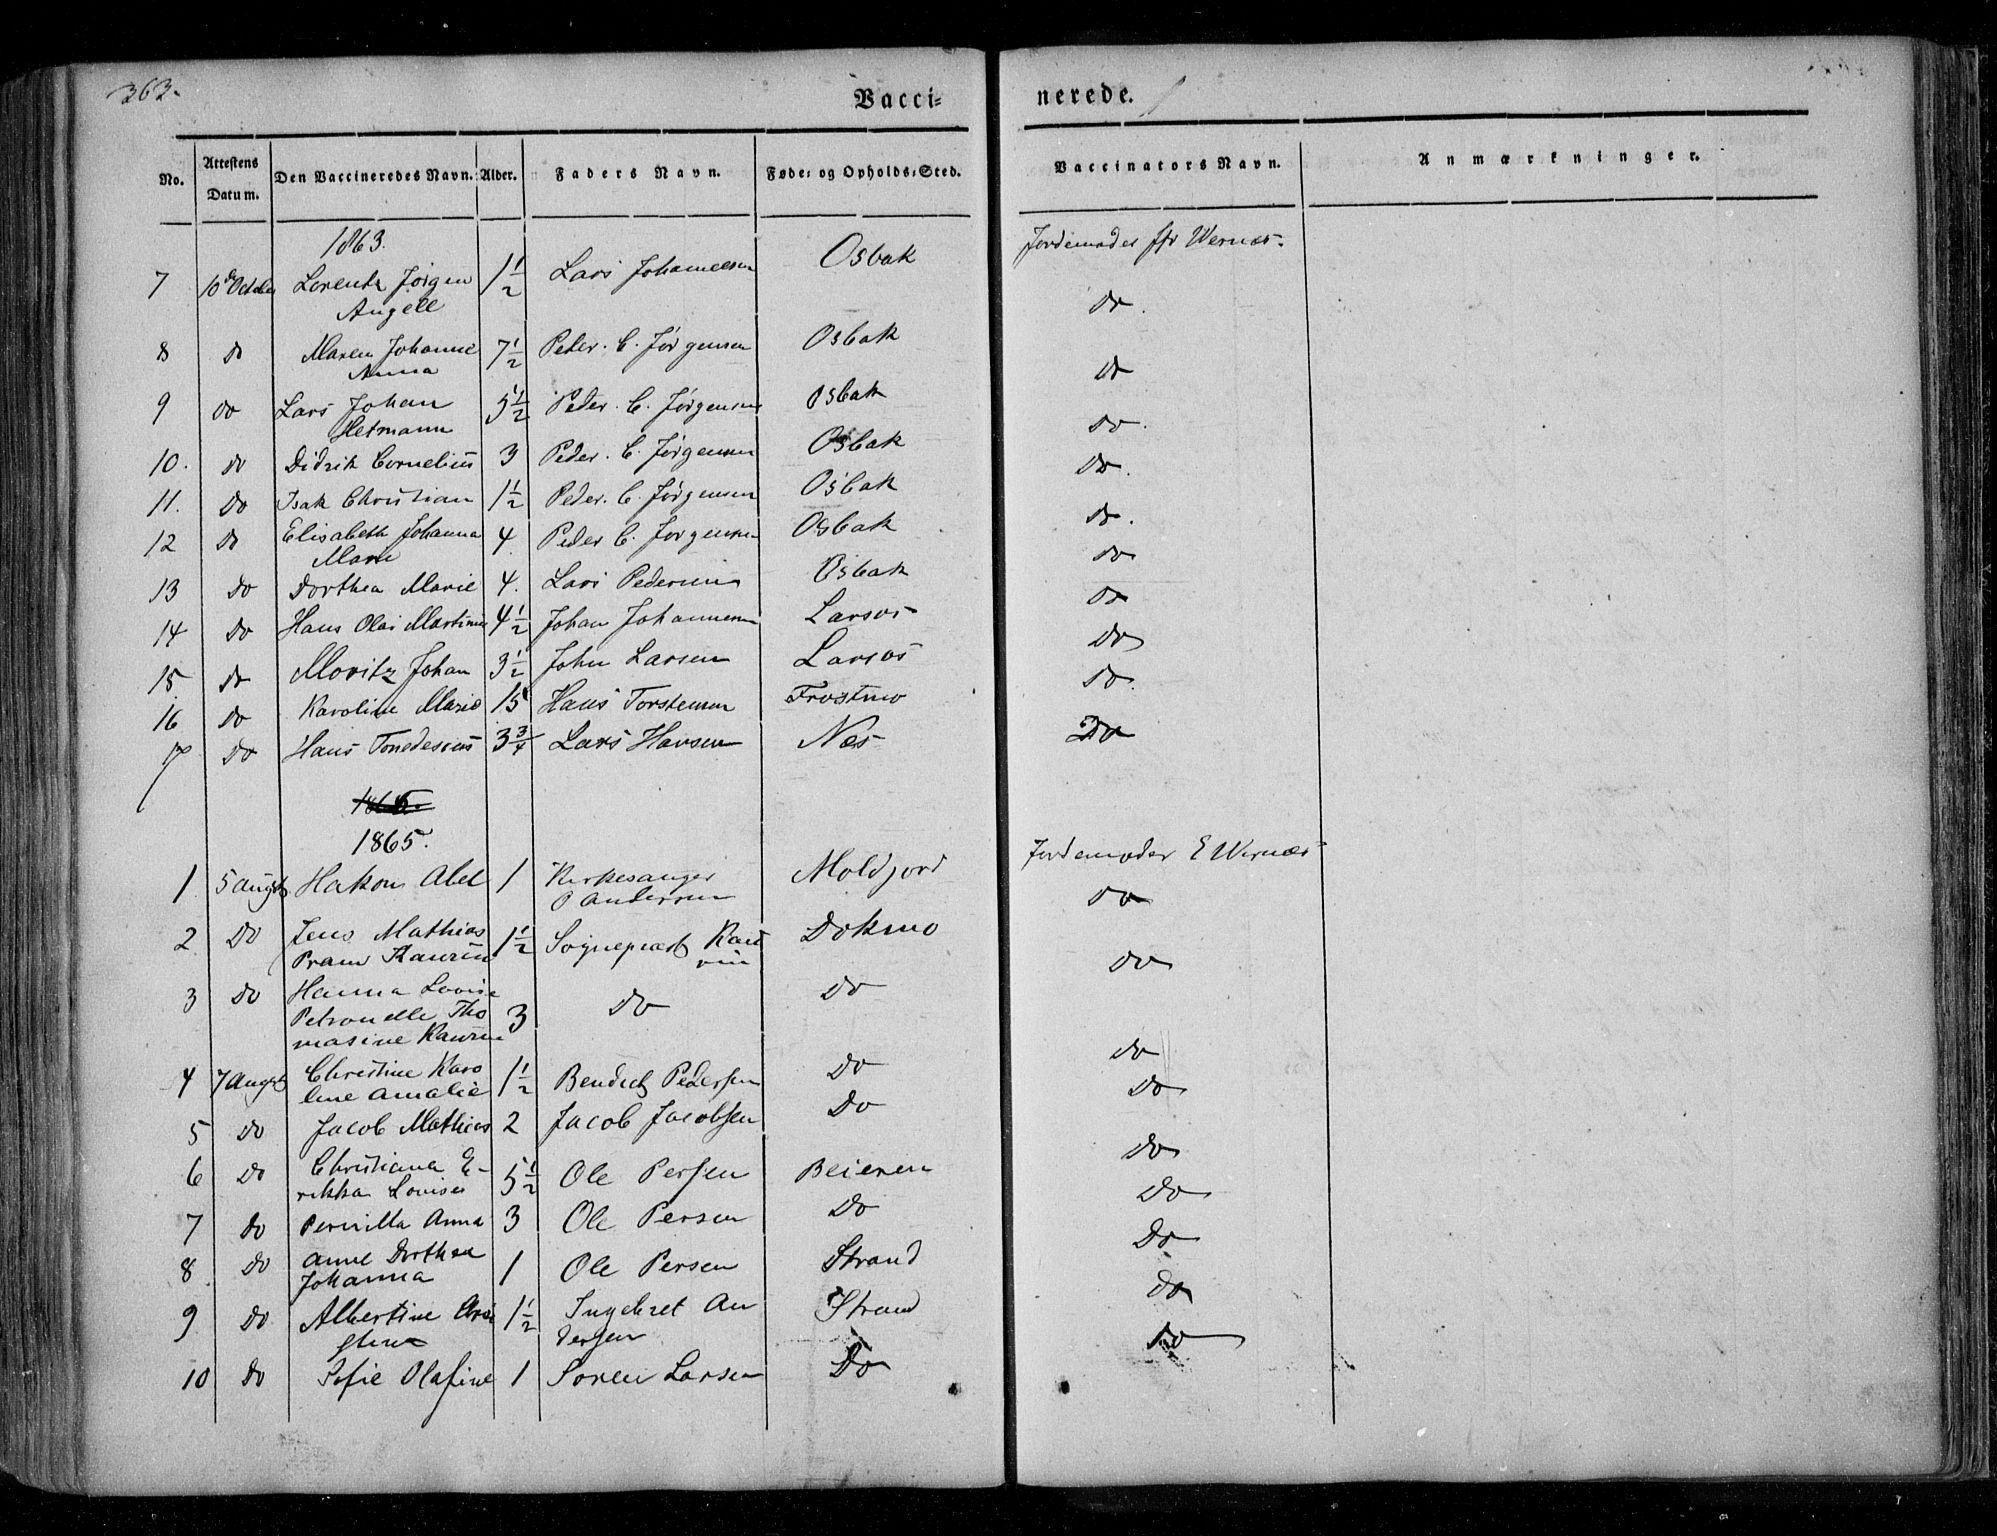 363.
Vacci= nerede.
No. Attestens Datum. Den Vaccineredes Navn. Alder. Faders Navn. Føde= og Opholds=Sted. Vaccinators Navn. Anmærkninger.
1863. Jordemoder Wernæs.
7 10de October Lorentz Jørgen 1 1/2 Lars Johannesen Osbak Do.
Angell
8 Do Maren Johanne 7 1/2 Peder. C. Jørgensen Osbak Do
Anna
9 Do Lars Johan 5 1/2 Peder. C. Jørgensen Osbak Do.
Hetmann
10. Do Didrik Cornelius 3 Peder. C. Jørgensen Osbak Do.
11. Do Isak Christian 1 1/2 Peder. C. Jørgensen Osbak Do.
12 Do Elisabeth Johanna 4. Peder C. Jørgensen Osbak Do
Marie
13 Do Dorthea Marie 4. Lars Pedersen Osbak Do
14 Do Hans Olai Martinus 4 1/2 Johan Johannesen Larsos Do
15 Do Moritz Johan 3 1/2 John Larsen Larsos Do.
16 Do Karoline Marie 15 Hans Torstensen Frostmo Do
17 Do Hans 3 3/4 Lars Hansen Næs
1865. Jordemoder E Wernæs
1 5 Augst Hakon Abel 1 Kirkesanger Moldjord Do
P Andersen
2 Do Jens Mathias 1 1/2 Sognepræst Kau Dokmo Do
Pram Kaurin rin
3 Do Hanna Lovise Do Do
Petronelle Tho 3
masine Kaurin
4 7 Augst Christine Karo 1 1/2 Bendict Pedersen Do Do
line Amalie
5 Do Jacob Mathias 2 Jacob Jacobsen Do Do
6 Do Christiana E- 5 1/2 Ole Persen Beieren Do
rikka Lovise
7 Do Pernilla Anna 3 Ole Persen Do Do
8 Do Anne Dorthea 1 Ole Persen Strand Do
Johanna
9 Do Albertine 1 1/2 Ingebret An Strand Do
dersen
10 Do Sofie Olafine 1 Søren Larsen Do Do